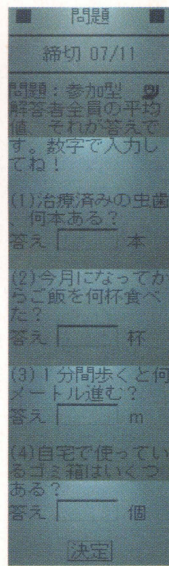 ■ 問題 ■
締切 07/11
問題：参加型
解答者全員の平均
値、それが答えで
す。数字で入力し
てね！
(1)治療済みの虫歯
何本ある？
答え 本
(2)今月になってか
らご飯を何杯食べ
た？
答え 杯
(3)1分間歩くと何
メートル進む？
答え m
(4)自宅で使ってい
るゴミ箱はいくつ
ある？
答え 個
決定